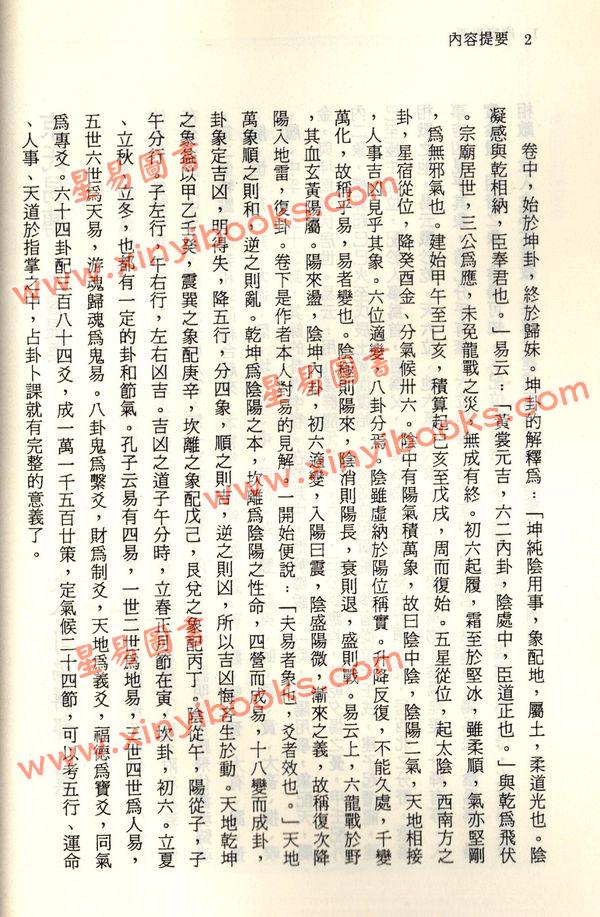 內容提要 2
卷中，始於坤卦，終於歸妹。坤卦的解釋爲：「坤純陰用事，象配地，屬土，柔道光也。陰
凝感與乾相納，臣奉君也。」易云：「黃裳元吉，六二內卦，陰處中，臣道正也。」與乾爲飛伏
。宗廟居世，三公爲應，未免龍戰之災，無成有終。初六起履，霜至於堅冰，雖柔順，氣亦堅剛
，爲無邪氣也。建始甲午至己亥，積算起己亥至戊戌，周而復始。五星從位，起太陰，西南方之
卦，星宿從位，降癸酉金、分氣候卅六。陰中有陽氣積萬象，故曰陰中陰，陰陽二氣，天地相接
，人事吉凶見乎其象。六位適變，八卦分焉。陰雖虛納於陽位稱實。升降反復，不能久處，千變
萬化，故稱乎易，易者變也。陰極則陽來，陰消則陽長，衰則退，盛則戰。易云上，六龍戰於野
，其血玄黃陽屬。陽來盪，陰坤內卦，初六適變，入陽曰震，陰盛陽微，漸來之義，故稱復次降
陽入地雷，復卦。卷下是作者本人對易的見解。一開始便說：「夫易者象也，爻者效也。」天地
萬象順之則和，逆之則亂。乾坤爲陰陽之本，坎離爲陰陽之性命，四營而成易，十八變而成卦，
卦象定吉凶，明得失，降五行，分四象，順之則吉，逆之則凶，所以吉凶悔吝生於動。天地乾坤
之象益以甲乙壬癸，震巽之象配庚辛，坎離之象配戊己，艮兌之象配丙丁。陰從午，陽從子，子
午分行。子左行，午右行，左右凶吉。吉凶之道子午分時，立春正月節在寅，坎卦，初六。立夏
、立秋、立冬，也都有一定的卦和節氣。孔子云易有四易，一世二世爲地易，三世四世爲人易，
五世六世爲天易，游魂歸魂爲鬼易。八卦鬼爲繫爻，財爲制爻，天地爲義爻，福德爲寶爻，同氣
爲專爻。六十四卦配三百八十四爻，成一萬一千五百廿策，定氣候二十四節，可以考五行、運命
、人事、天道於指掌之中，占卦卜課就有完整的意義了。
星易圖書
www.xinyibooks.com
星易圖書
www.xinyibooks.com
星易圖書
www.xinyibooks.com